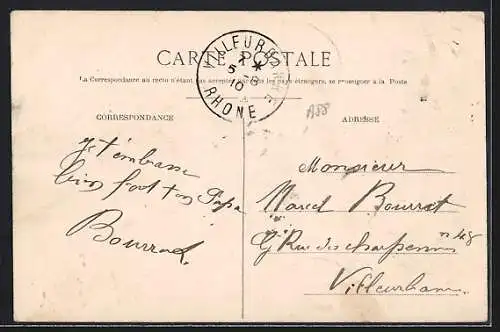 CARTE POSTALE
La Correspondance au recto n'étant pas acceptée par tous les pays étrangers, se renseigner à la Poste
VILLEURBANNE
5-8
10
RHONE
CORRESPONDANCE
ADRESSE
A88
Je t'embrasse
bien fort ton Papa
Bourrat
Monsieur
Marcel Bourrat
Rue des charpennes n 48
Villeurbanne